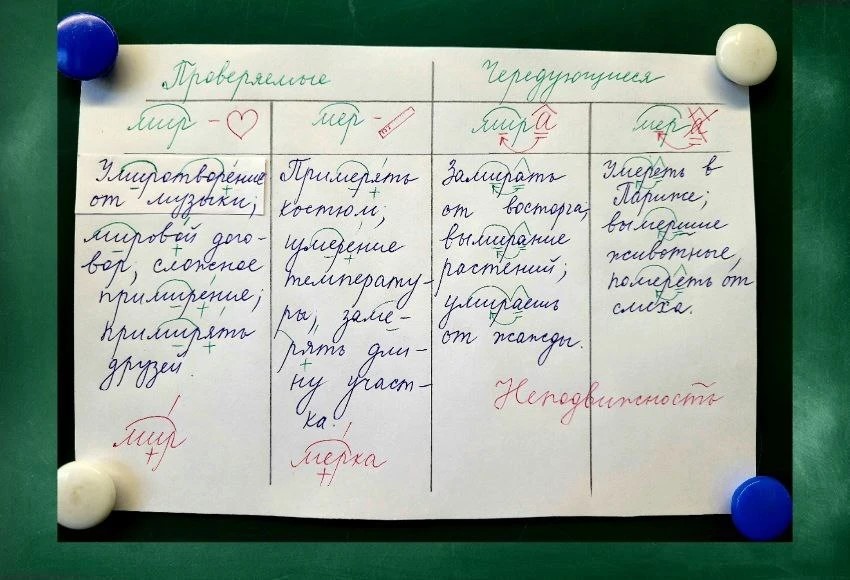 Проверяемые
Чередующиеся
мир -
мер -
мира
мера
Умиротворение
от музыки;
мировой дого-
вор; сложное
примирение;
примирять
друзей.
мир
Примерять
костюм;
измерение
температу-
ры; заме-
рять дли-
ну участ-
ка.
мерка
Замирать
от восторга;
вымирание
растений;
умираешь
от жажды.
Умереть в
Париже;
вымершие
животные,
помереть от
смеха.
Неподвижность